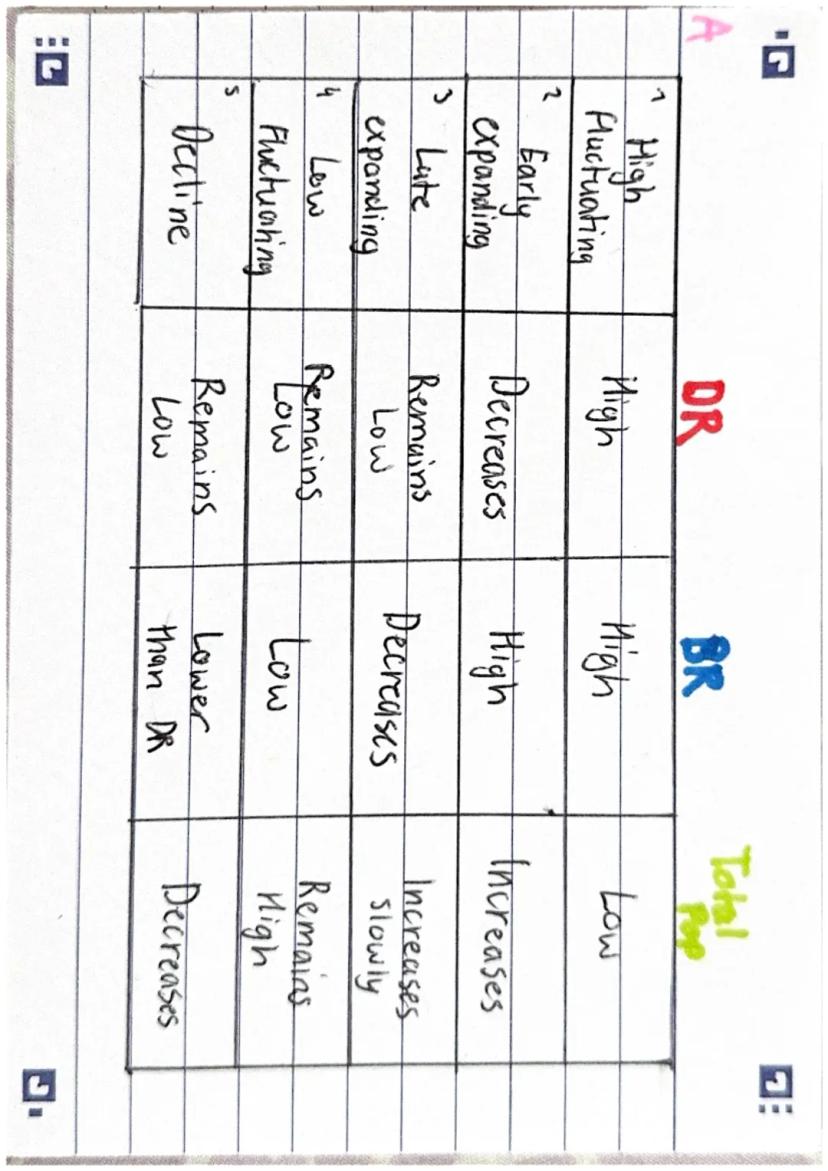 A
DR BR Total Pop
1 High Fluctuating High High Low
2 Early expanding Decreases High Increases
3 Late expanding Remains Low Decreases Increases slowly
4 Low Fluctuating Remains Low Low Remains High
5 Decline Remains Low Lower than DR Decreases